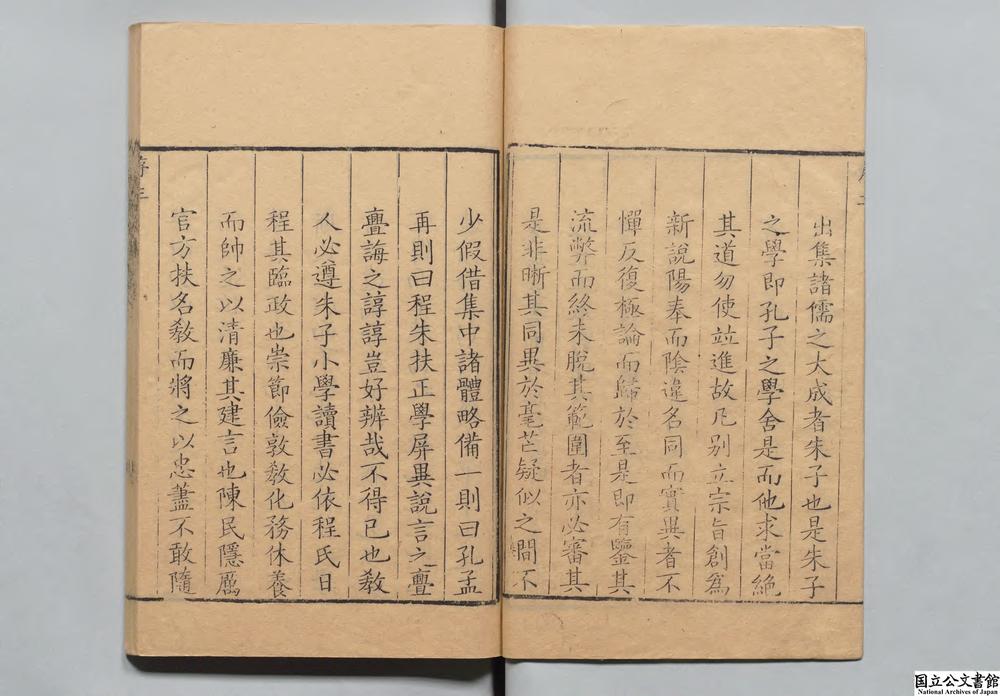 出集諸儒之大成者朱子也是朱子
之學即孔子之學舍是而他求當絕
其道勿使竝進故凡别立宗旨創爲
新說陽奉而陰違名同而實異者不
憚反復極論而歸於至是即有鑒其
流弊而終未脫其範圍者亦必審其
是非晰其同異於毫芒疑似之間不
少假借集中諸體略備一則曰孔孟
再則曰程朱扶正學屏異說言之亹
亹誨之諄諄豈好辨哉不得已也敎
人必遵朱子小學讀書必依程氏日
程其臨政也崇節儉敦敎化務休養
而帥之以清廉其建言也陳民隱厲
官方扶名敎而將之以忠藎不敢隨
序
国立公文書館
National Archives of Japan